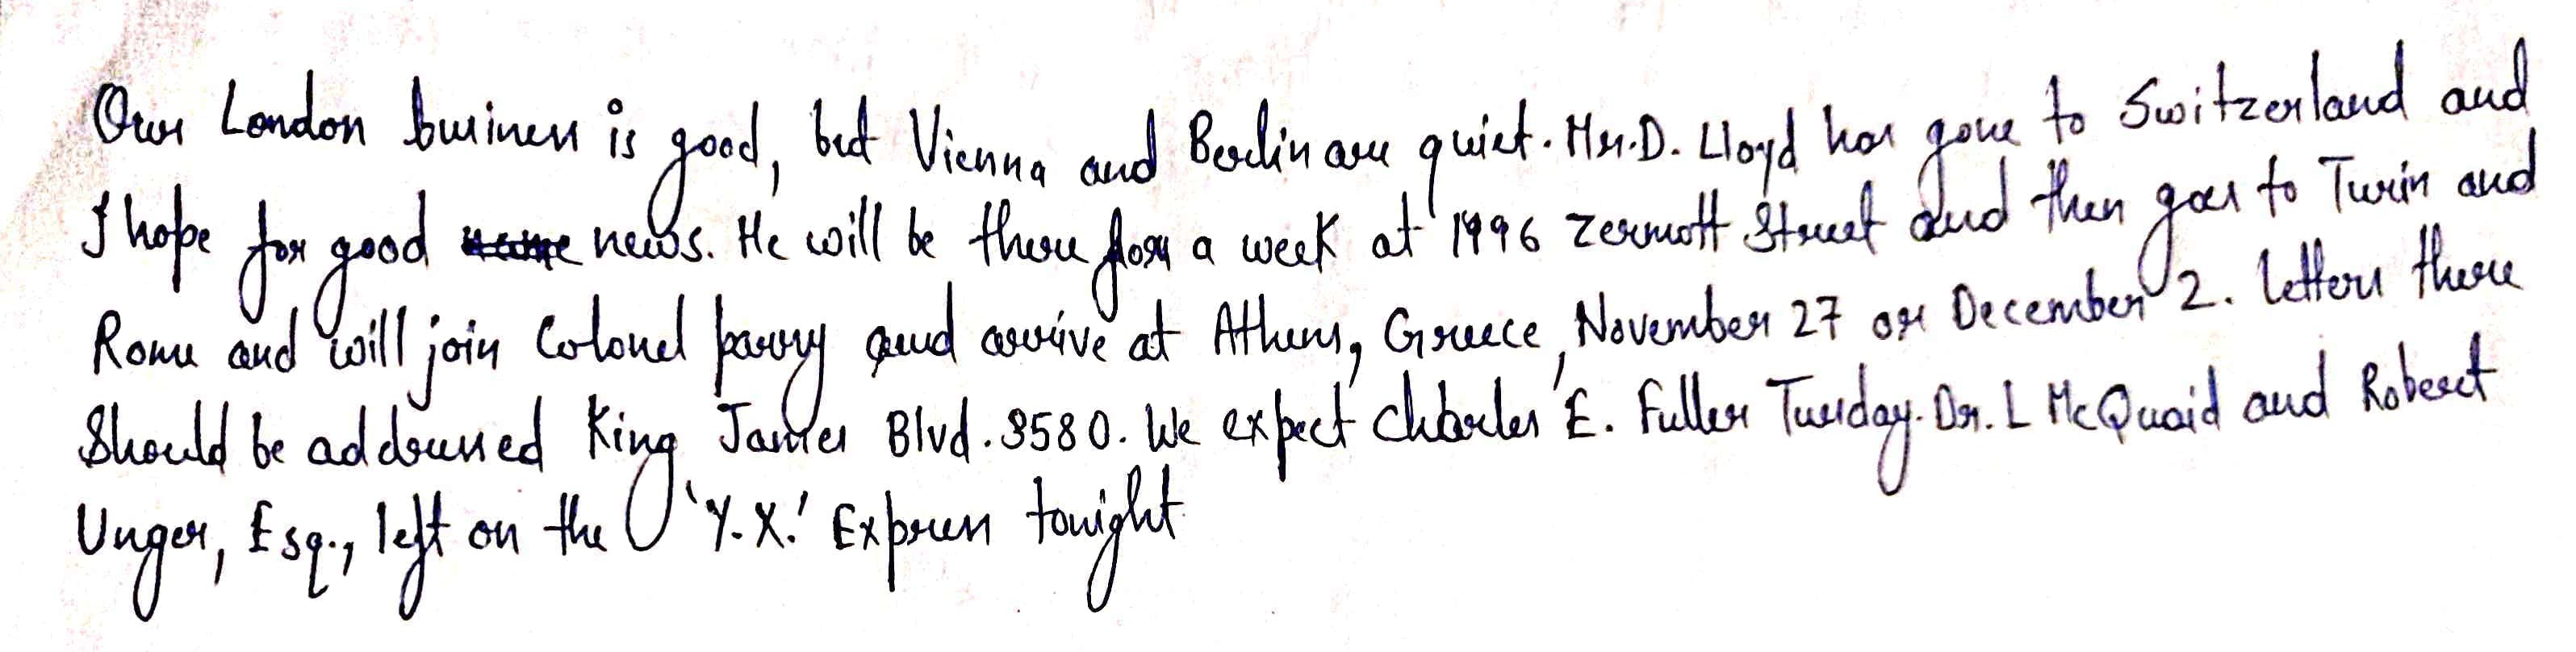 Our London business is good, but Vienna and Berlin are quiet. Mr. D. Lloyd has gone to Switzerland and
I hope for good news. He will be there for a week at 1996 Zermott Street and then goes to Turin and
Rome and will join Colonel parry and arrive at Athens, Greece, November 27 or December 2. Letters there
Should be addressed King James Blvd. 3580. We expect Charles E. Fuller Tuesday. Dr. L McQuaid and Robert
Unger, Esq., left on the 'Y.X.' Express tonight